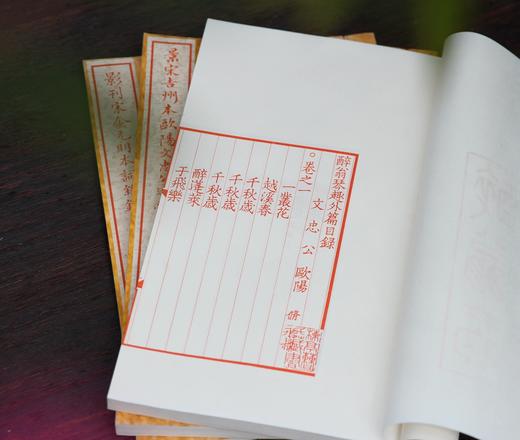 醉翁琴趣外篇目録
卷之一 文忠公歐陽 脩
一叢花
越溪春
千秋歲
千秋歲
千秋歲
醉蓬萊
于飛樂
景宋吉州本歐陽
影刊宋金元明本詞